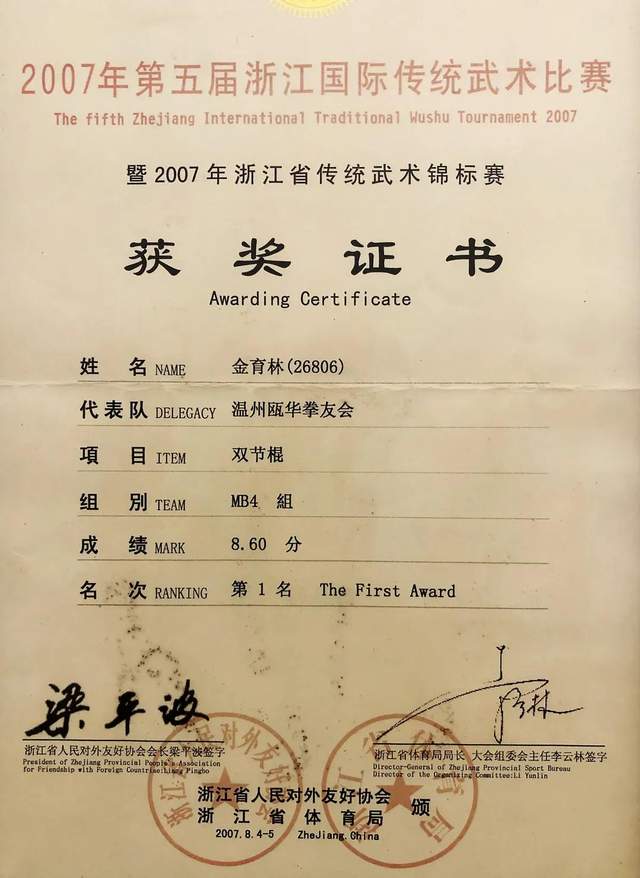 2007年第五届浙江国际传统武术比赛
The fifth Zhejiang International Traditional Wushu Tournament 2007
暨2007年浙江省传统武术锦标赛
获奖证书
Awarding Certificate
姓名 NAME 金育林(26806)
代表队 DELEGACY 温州瓯华拳友会
項目 ITEM 双节棍
组別 TEAM MB4 組
成绩 MARK 8.60 分
名次 RANKING 第 1 名 The First Award
梁平波
浙江省人民对外友好协会会长梁平波签字
President of Zhejiang Provincial People's Association
for Friendship with Foreign Countries:liang Pingbo
浙江省体育局局长 大会组委会主任李云林签字
Director-General of Zhejiang Provincial Sport Bureau
Director of the Organizing Committee:Li Yunlin
浙江省人民对外友好协会
浙江省体育局 颁
2007.8.4-5 ZheJiang.China